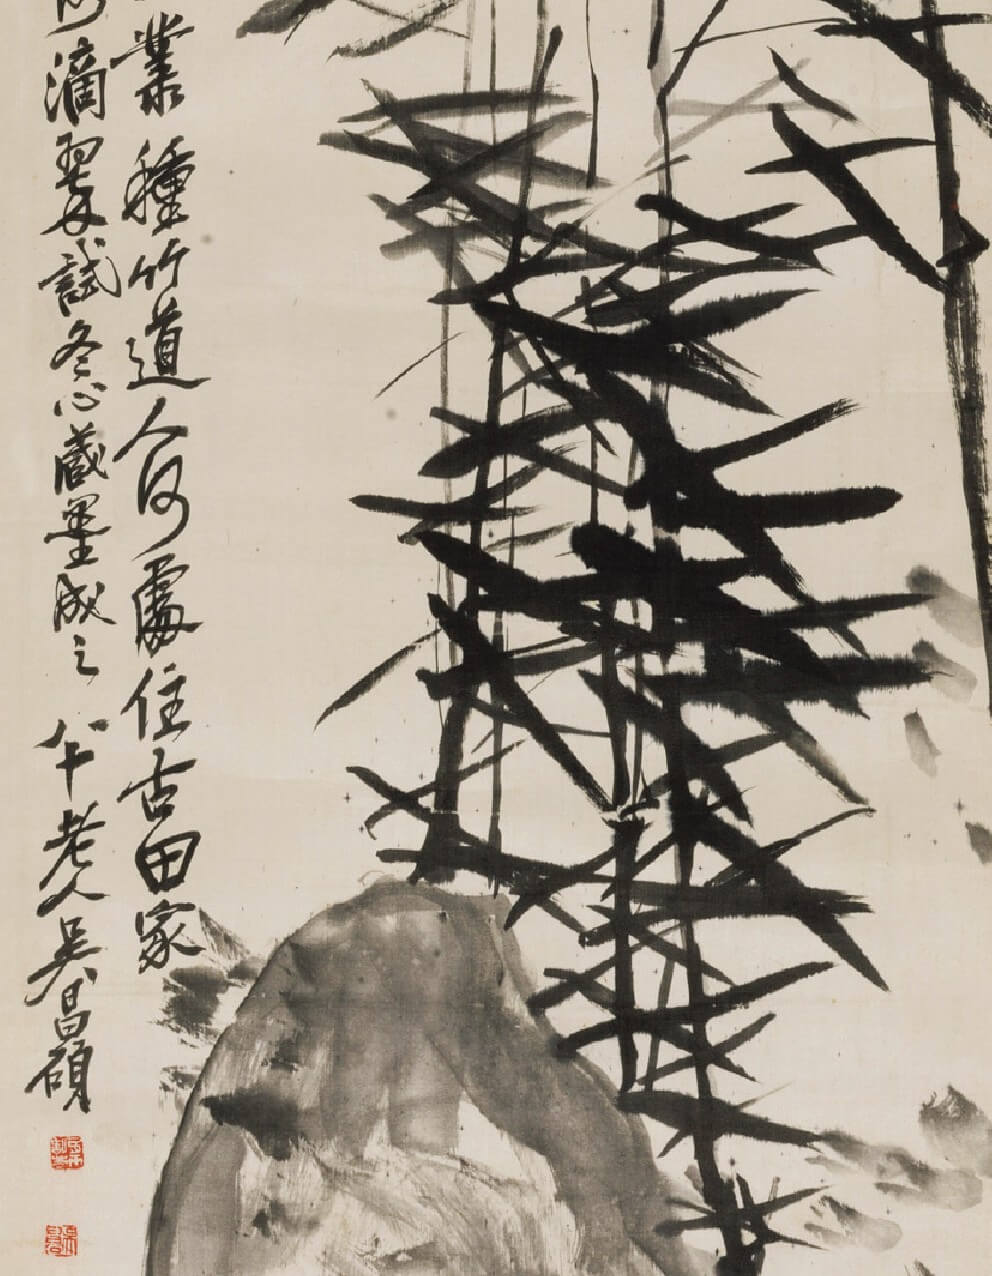 業種竹道人何處住古田家
滴翠試冬心藏墨成之 八十老人吳昌碩